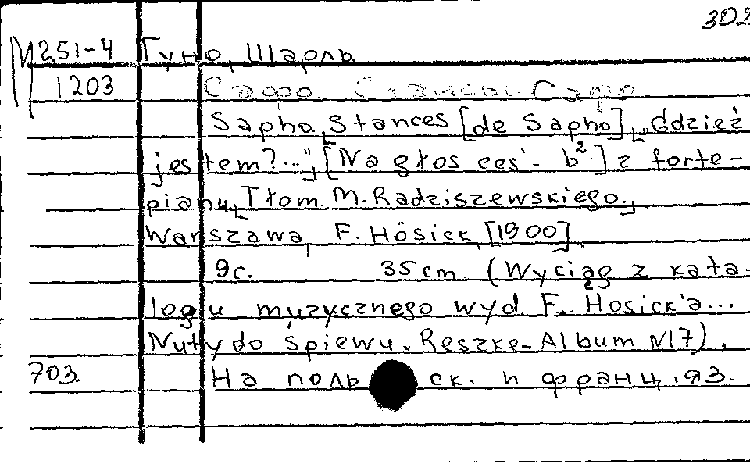 302
M 251-4 Гуно, Шарль
1203 Сафо. Стансы Сафо.
Sapho. Stances [de Sapho]. „Gdzież
jestem?...", [Na głos ces'- b²] z forte-
pianu, Tłom M. Radziszewskiego.
Warszawa, F. Hösick, [1900].
9c. 35cm (Wyciąg z kata-
logu muzycznego wyd F. Hösick'a...
Nuty do śpiewu. Reszke-Album N17).
703. На польск. и франц. яз.